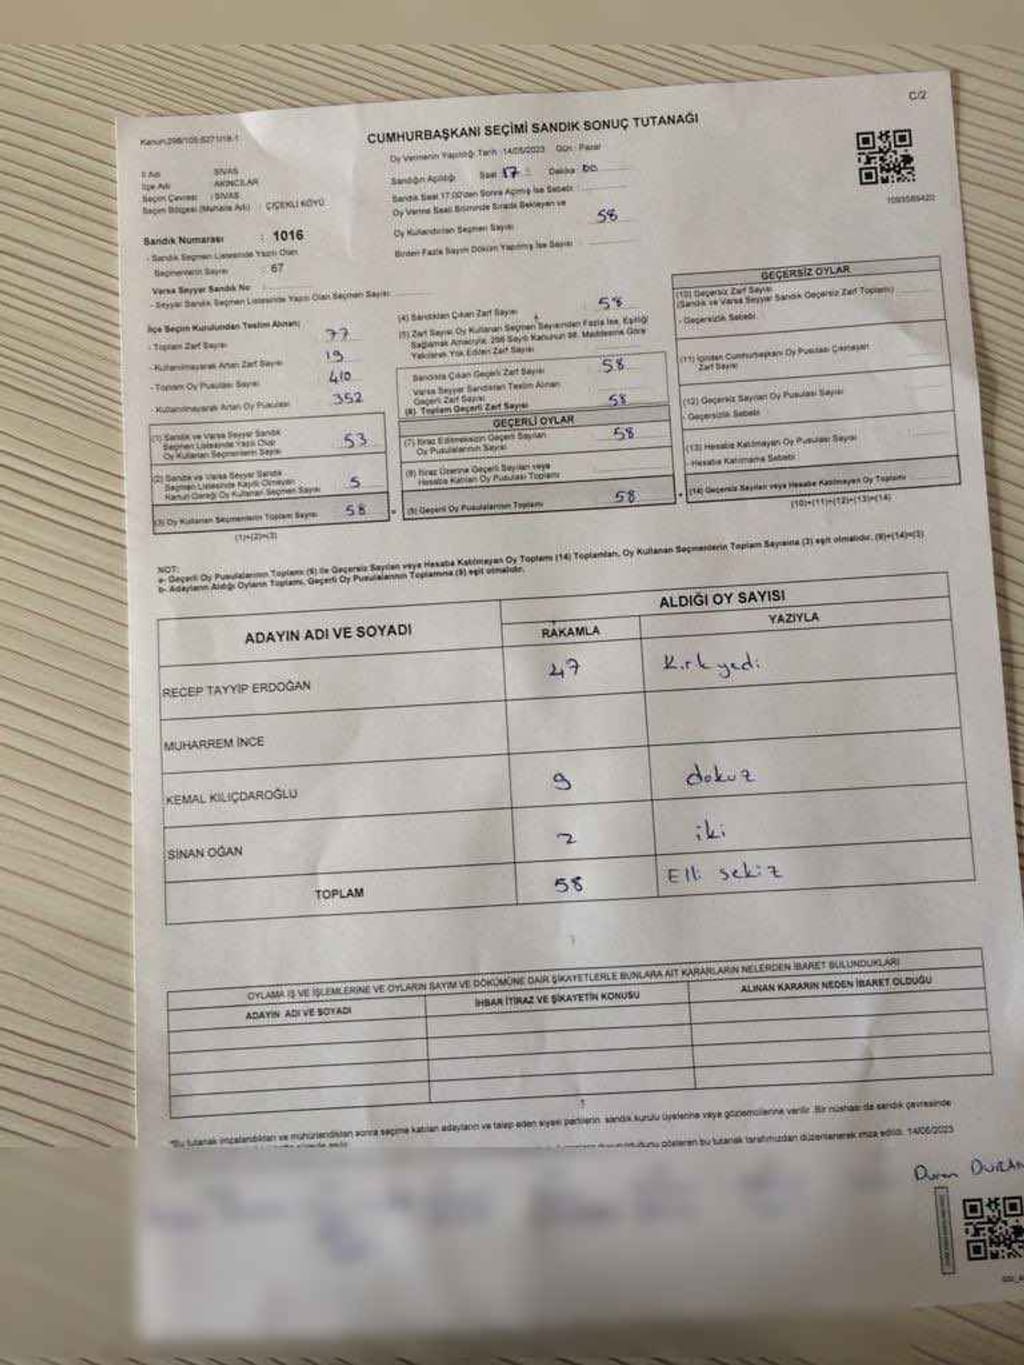 C/2
Kanun:298/105-6271/18-1
CUMHURBAŞKANI SEÇİMİ SANDIK SONUÇ TUTANAĞI
Oy Vermenin Yapıldığı Tarih : 14/05/2023 Gün : Pazar
İl Adı SİVAS
İlçe Adı AKINCILAR
Seçim Çevresi : SİVAS
Seçim Bölgesi (Mahalle Adı) : ÇİÇEKLİ KÖYÜ
Sandığın Açıldığı Saat 17 : Dakika 00
Sandık Saat 17.00'den Sonra Açılmış İse Sebebi :
Oy Verme Saati Bitiminde Sırada Bekleyen ve
Oy Kullandırılan Seçmen Sayısı 58
Birden Fazla Sayım Döküm Yapılmış İse Sayısı :
1093589420
Sandık Numarası : 1016
- Sandık Seçmen Listesinde Yazılı Olan
Seçmenlerin Sayısı : 67
Varsa Seyyar Sandık No :
- Seyyar Sandık Seçmen Listesinde Yazılı Olan Seçmen Sayısı:
İlçe Seçim Kurulundan Teslim Alınan;
- Toplam Zarf Sayısı 77
- Kullanılmayarak Artan Zarf Sayısı 19
- Toplam Oy Pusulası Sayısı 410
- Kullanılmayarak Artan Oy Pusulası 352
(1) Sandık ve Varsa Seyyar Sandık
Seçmen Listesinde Yazılı Olup
Oy Kullanan Seçmenlerin Sayısı 53
(2) Sandık ve Varsa Seyyar Sandık
Seçmen Listesinde Kayıtlı Olmayan
Kanun Gereği Oy Kullanan Seçmen Sayısı 5
(3) Oy Kullanan Seçmenlerin Toplam Sayısı 58
(1)+(2)=(3)
(4) Sandıktan Çıkan Zarf Sayısı 58
(5) Zarf Sayısı Oy Kullanan Seçmen Sayısından Fazla İse, Eşitliği
Sağlamak Amacıyla, 298 Sayılı Kanunun 98. Maddesine Göre
Yakılarak Yok Edilen Zarf Sayısı
Sandıkta Çıkan Geçerli Zarf Sayısı 58
Varsa Seyyar Sandıktan Teslim Alınan
Geçerli Zarf Sayısı
(6) Toplam Geçerli Zarf Sayısı 58
GEÇERLİ OYLAR
(7) İtiraz Edilmeksizin Geçerli Sayılan
Oy Pusulalarının Sayısı 58
(8) İtiraz Üzerine Geçerli Sayılan veya
Hesaba Katılan Oy Pusulası Toplamı
(9) Geçerli Oy Pusulalarının Toplamı 58
GEÇERSİZ OYLAR
(10) Geçersiz Zarf Sayısı
(Sandık ve Varsa Seyyar Sandık Geçersiz Zarf Toplamı)
- Geçersizlik Sebebi
(11) İçinden Cumhurbaşkanı Oy Pusulası Çıkmayan
Zarf Sayısı
(12) Geçersiz Sayılan Oy Pusulası Sayısı
- Geçersizlik Sebebi
(13) Hesaba Katılmayan Oy Pusulası Sayısı
- Hesaba Katılmama Sebebi
(14) Geçersiz Sayılan veya Hesaba Katılmayan Oy Toplamı
(10)+(11)+(12)+(13)=(14)
NOT:
a- Geçerli Oy Pusulalarının Toplamı (9) ile Geçersiz Sayılan veya Hesaba Katılmayan Oy Toplamı (14) Toplamları, Oy Kullanan Seçmenlerin Toplam Sayısına (3) eşit olmalıdır. (9)+(14)=(3)
b- Adayların Aldığı Oyların Toplamı, Geçerli Oy Pusulalarının Toplamına (9) eşit olmalıdır.
ADAYIN ADI VE SOYADI
ALDIĞI OY SAYISI
RAKAMLA YAZIYLA
RECEP TAYYİP ERDOĞAN 47 Kırk yedi
MUHARREM İNCE
KEMAL KILIÇDAROĞLU 9 dokuz
SİNAN OĞAN 2 iki
TOPLAM 58 Elli sekiz
OYLAMA İŞ VE İŞLEMLERİNE VE OYLARIN SAYIM VE DÖKÜMÜNE DAİR ŞİKAYETLERLE BUNLARA AİT KARARLARIN NELERDEN İBARET BULUNDUKLARI
ADAYIN ADI VE SOYADI İHBAR İTİRAZ VE ŞİKAYETİN KONUSU ALINAN KARARIN NEDEN İBARET OLDUĞU
*Bu tutanak imzalandıktan ve mühürlendikten sonra seçime katılan adayların ve talep eden siyasi partilerin sandık kurulu üyelerine veya gözlemcilerine verilir. Bir nüshası da sandık çevresinde
bu tutanak tarafımızdan düzenlenerek imza edildi. 14/05/2023
Duran DURAN